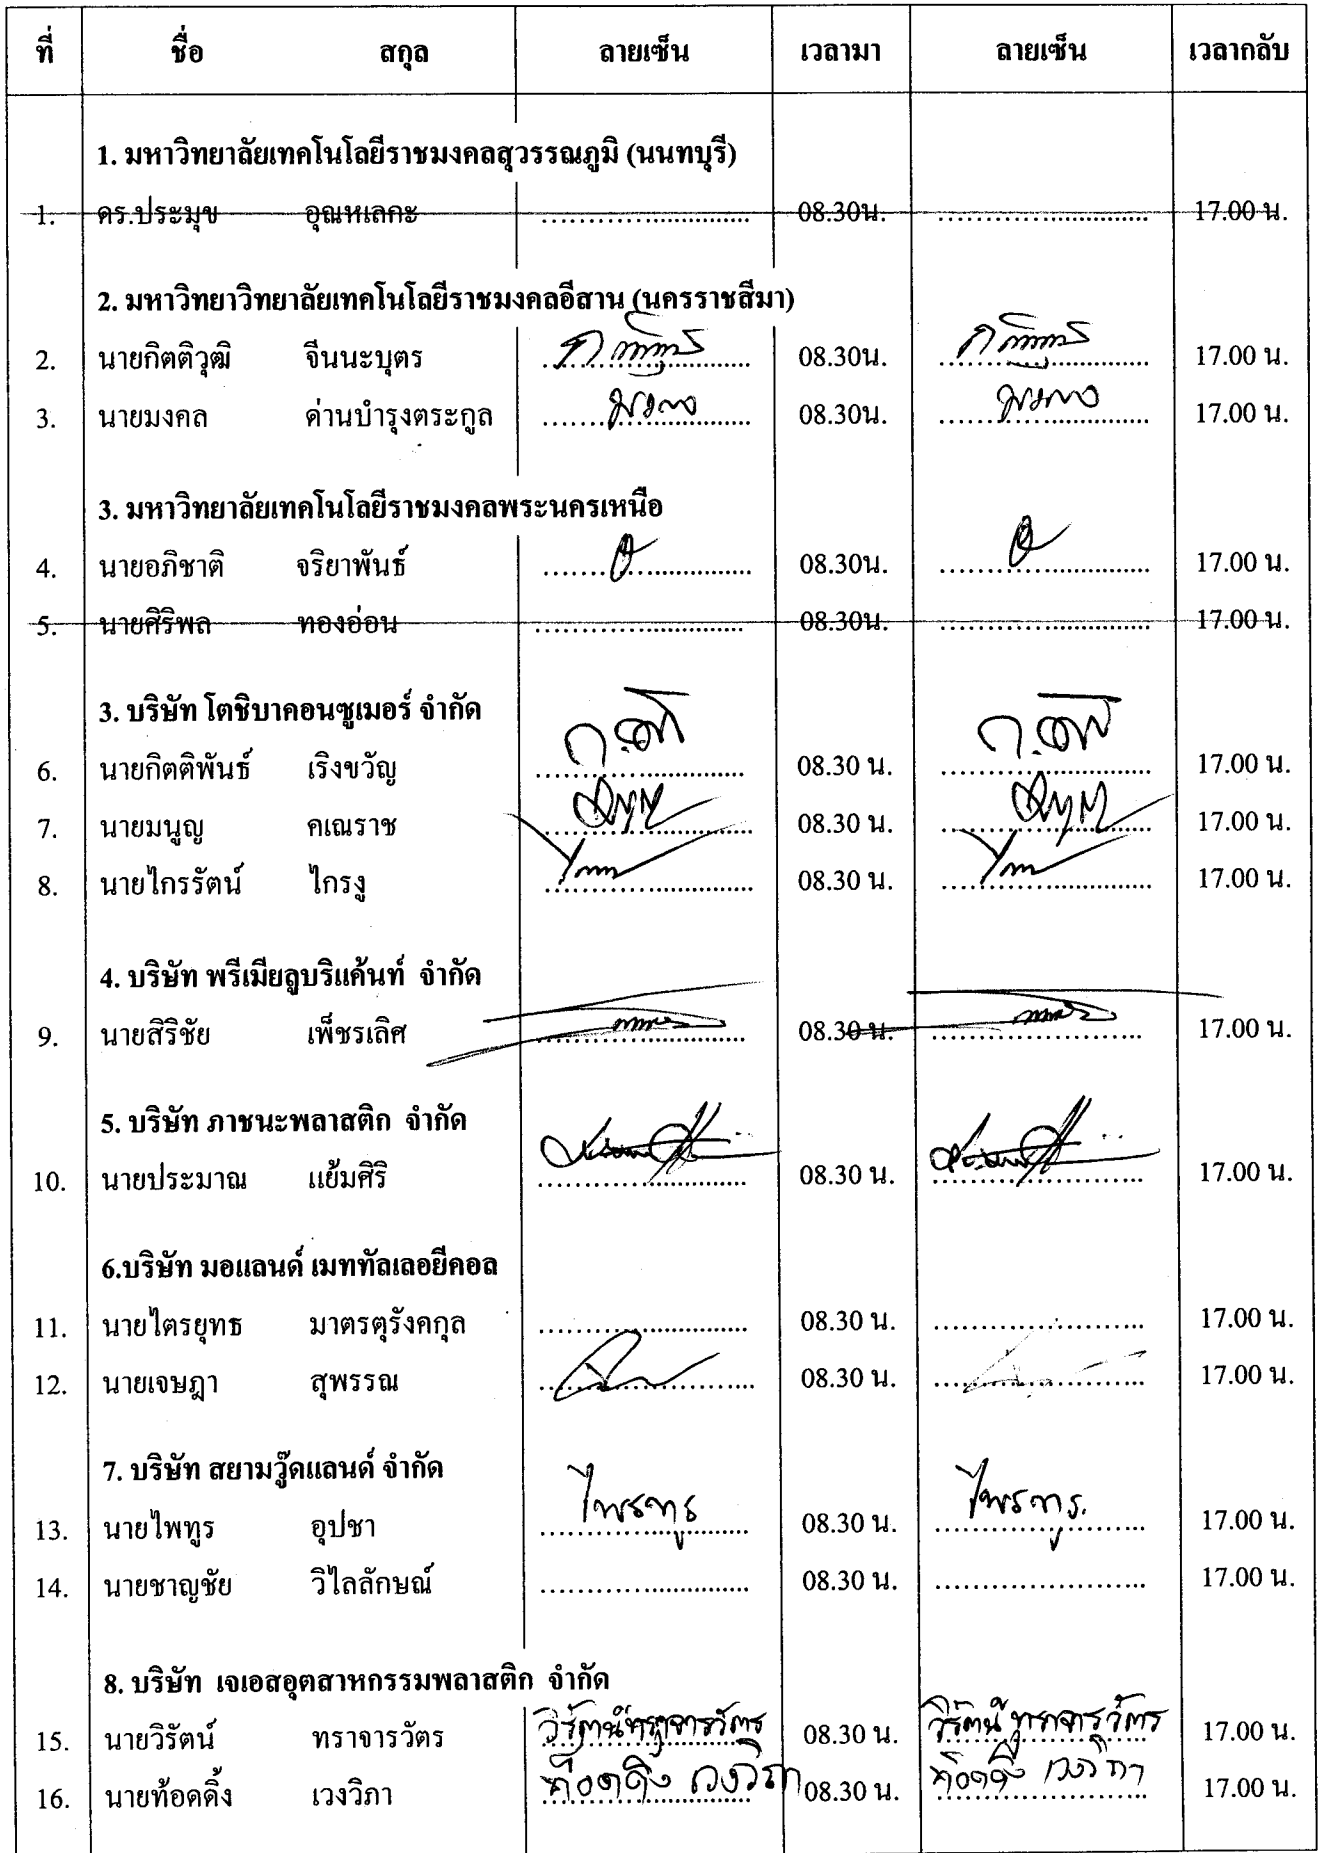 ที่ ชื่อ สกุล ลายเซ็น เวลามา ลายเซ็น เวลากลับ
1. มหาวิทยาลัยเทคโนโลยีราชมงคลสุวรรณภูมิ (นนทบุรี)
1. ดร.ประมุข อุณหเลกะ ........................... 08.30น. ........................... 17.00 น.
2. มหาวิทยาวิทยาลัยเทคโนโลยีราชมงคลอีสาน (นครราชสีมา)
2. นายกิตติวุฒิ จีนนะบุตร 08.30น. 17.00 น.
3. นายมงคล ด่านบำรุงตระกูล มงคล 08.30น. มงคล 17.00 น.
3. มหาวิทยาลัยเทคโนโลยีราชมงคลพระนครเหนือ
4. นายอภิชาติ จริยาพันธ์ 08.30น. 17.00 น.
5. นายศิริพล ทองอ่อน ........................... 08.30น. ........................... 17.00 น.
3. บริษัท โตชิบาคอนซูเมอร์ จำกัด
6. นายกิตติพันธ์ เริงขวัญ 08.30 น. 17.00 น.
7. นายมนูญ คเณราช 08.30 น. 17.00 น.
8. นายไกรรัตน์ ไกรงู 08.30 น. 17.00 น.
4. บริษัท พรีเมียลูบริแค้นท์ จำกัด
9. นายสิริชัย เพ็ชรเลิศ 08.30 น. 17.00 น.
5. บริษัท ภาชนะพลาสติก จำกัด
10. นายประมาณ แย้มศิริ 08.30 น. 17.00 น.
6.บริษัท มอแลนด์ เมททัลเลอยีคอล
11. นายไตรยุทธ มาตรตุรังคกุล ........................... 08.30 น. ........................... 17.00 น.
12. นายเจษฎา สุพรรณ 08.30 น. 17.00 น.
7. บริษัท สยามวู๊ดแลนด์ จำกัด
13. นายไพทูร อุปชา ไพรทูร 08.30 น. ไพรทูร. 17.00 น.
14. นายชาญชัย วิไลลักษณ์ ........................... 08.30 น. ........................... 17.00 น.
8. บริษัท เจเอสอุตสาหกรรมพลาสติก จำกัด
15. นายวิรัตน์ ทราจารวัตร วิรัตน์ ทราจารวัตร 08.30 น. วิรัตน์ ทราจารวัตร 17.00 น.
16. นายท้อดดิ้ง เวงวิภา ท้อดดิ้ง เวงวิภา 08.30 น. ท้อดดิ้ง เวงวิภา 17.00 น.